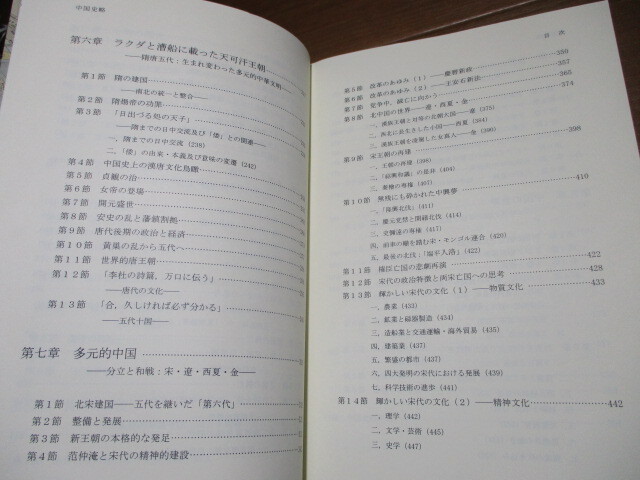 中国史略
第六章 ラクダと漕船に載った天可汗王朝
――隋唐五代：生まれ変わった多元的中華文明
第1節 隋の建国
――南北の統一と整合――
第2節 隋煬帝の功罪
第3節 「日出づる処の天子」
――隋までの日中交流及び「倭」との関連――
一、隋までの日中交流 (238)
二、「倭」の由来・本義及び意味の変遷 (242)
第4節 中国史上の漢唐文化鳥瞰
第5節 貞観の治
第6節 女帝の登場
第7節 開元盛世
第8節 安史の乱と藩鎮割拠
第9節 唐代後期の政治と経済
第10節 黄巣の乱から五代へ
第11節 世界的唐王朝
第12節 「李杜の詩篇，万口に伝う」
――唐代の文化――
第13節 「合，久しければ必ず分かる」
――五代十国――
第七章 多元的中国
――分立と和戦：宋・遼・西夏・金――
第1節 北宋建国――五代を継いだ「第六代」
第2節 整備と発展
第3節 新王朝の本格的な発足
第4節 范仲淹と宋代の精神的建設
目次
第5節 改革のあゆみ（1）――慶暦新政 355
第6節 改革のあゆみ（2）――王安石新法 357
第7節 党争中，滅亡に向かう 365
第8節 北中国の世界――遼・西夏・金 374
(375)
二、西北に長生きした小国――西夏 (384)
(398)
第9節 宋王朝の再建 398
一、王朝の再建 (398)
二、「紹興和議」の是非 (404)
三、秦檜の専権 (407)
第10節 無残にも砕かれた中興夢 410
一、「隆興北伐」(411)
二、慶元党禁と開禧北伐 (414)
三、史弥遠の専権 (417)
四、前車の轍を踏む宋・モンゴル連合 (420)
五、最後の北伐：「端平入洛」(421)
第11節 揚江亡国の悲劇再演 422
第12節 宋代の政治特徴と両宋亡国への思考 428
第13節 輝かしい宋代の文化（1）――物質文化 433
一、農業 (433)
二、鉱業と磁器製造 (434)
三、造船業と交通運輸・海外貿易 (435)
四、建築業 (437)
五、繁盛の都市 (437)
六、四大発明の宋代における発展 (439)
七、科学技術の進歩 (441)
第14節 輝かしい宋代の文化（2）――精神文化 442
一、理学 (442)
二、文学・芸術 (445)
三、史学 (447)